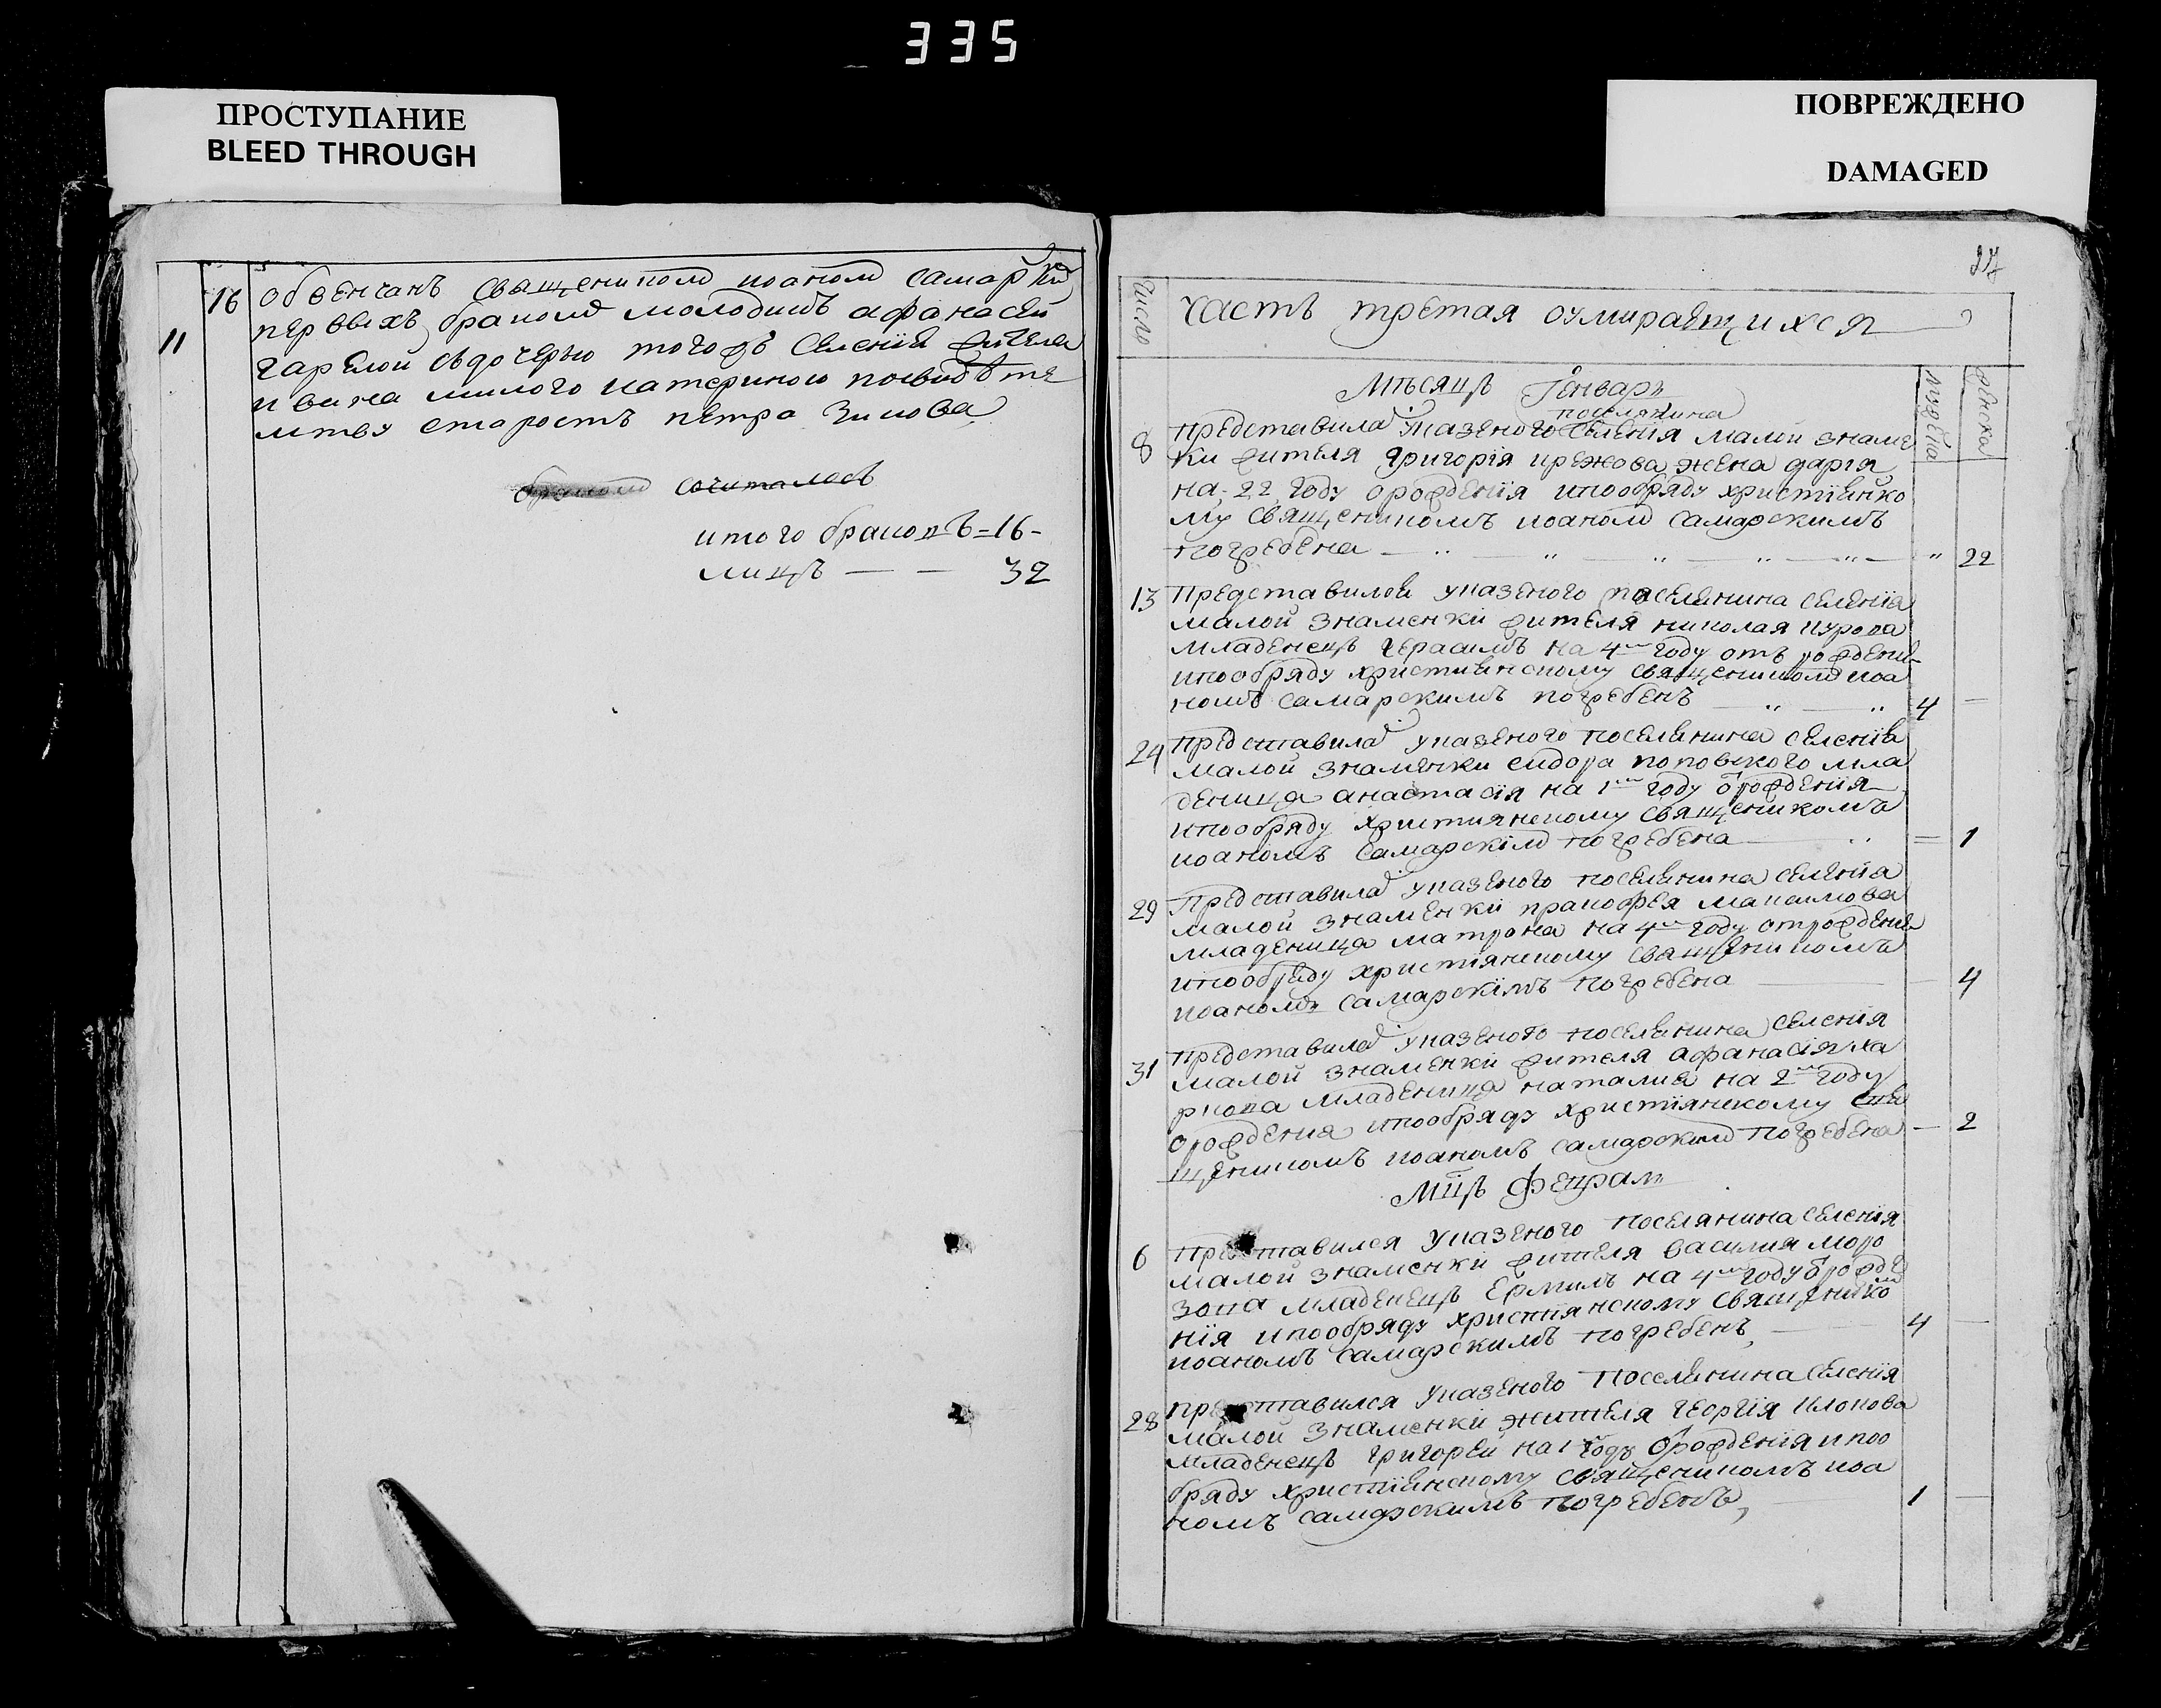 335
ПРОСТУПАНИЕ
BLEED THROUGH
ПОВРЕЖДЕНО
DAMAGED
16 обвенчанъ священикомъ иоаномъ самарски
первыхъ бракомъ молодикъ афанасей
11
гарѣлой съдочерью тогожъ селения жителя
ивана милого катериною посвидѣте
лтву старостъ петра Зинова
сочиталось
итого браковъ = 16 -
лицъ — — 32
27
Число
часть третая оумирающихся
Мѣсяцъ Генварь
мужеска
женска
поселянина
8 представила указеного селения малой знаме
ки жителя григория ирежова жена дария
на 22 году орождения ипообряду християнско
му священикомъ иоаномъ самарскимъ
погребена 22
13 Представилси указеного поселянина селения
малой знаменки жителя николая курова
младенецъ герасимъ на 4м году отъ рождени
ипообряду християнскому священикомъ иоа
номъ самарскимъ погребенъ 4
24 представила указеного поселянина селения
малой знаменки сидора поповского мла
деница анастасия на 1м году орождения
ипообряду християнскому священикомъ
иоаномъ самарскимъ погребена 1
29 Представила указеного поселянина селения
малой знаменки прокофея максимова
младеница матрона на 4м году отрождения
ипообряду християнскому священикомъ
иоаномъ самарскимъ погребена 4
31 представила указеного поселянина селения
малой знаменки жителя афанасия ха
ркова младеница наталия на 2м году
орождения ипообряду християнскому свя
щеникомъ иоаномъ самарскимъ погребена 2
Мцъ Февраль
6 Представился указеного поселянина селения
малой знаменки жителя василия моро
зова младенецъ Ермилъ на 4м году орожде
ния ипообряду християнскому священико
иоаномъ самарскимъ погребенъ 4
28 представился указеного поселянина селения
малой знаменки жителя георгия клокова
младенецъ григорей на 1м году орождения ипоо
бряду християнскому священикомъ иоа
номъ самарскимъ погребенъ, 1